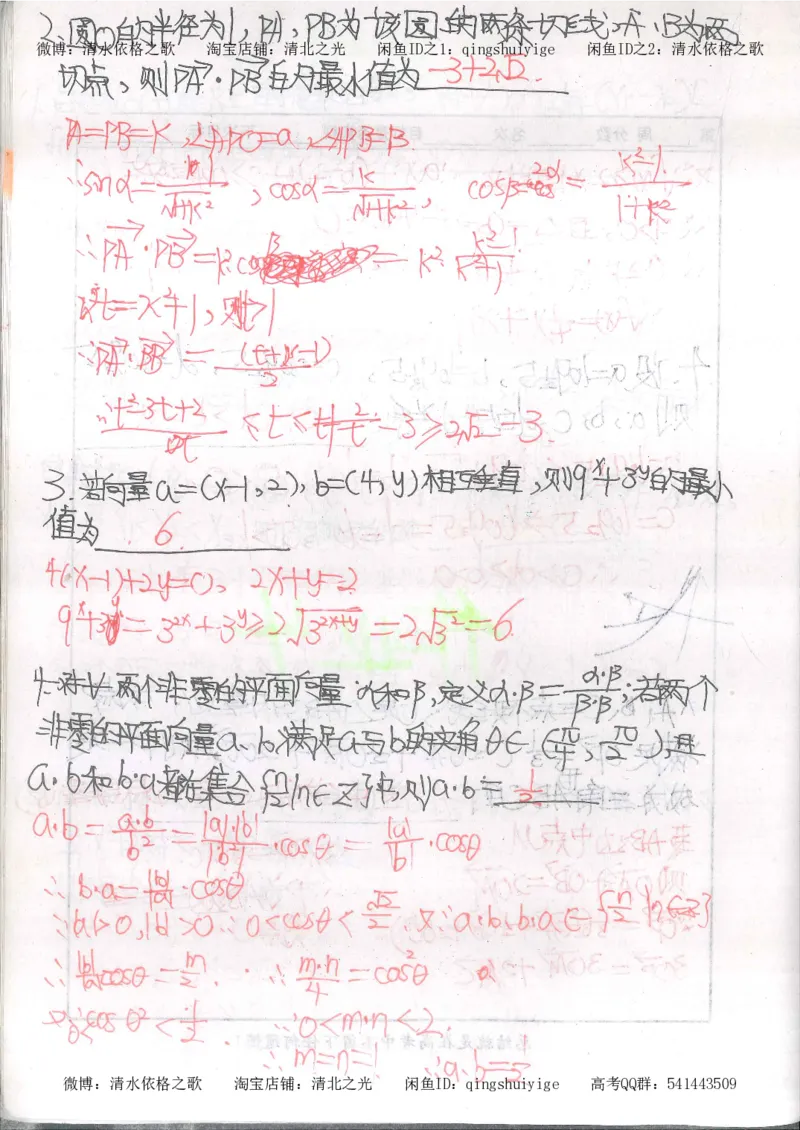 2.圆O的半径为1,PA,PB为该圆的两条切线,A、B为两
微博:清水依格之歌 淘宝店铺:清北之光 闲鱼ID之1:qingshuiyige 闲鱼ID之2:清水依格之歌
切点,则PA·PB的最小值为 -3+2√2.
PA=PB=K,∠APO=α,∠APB=β.
∴sinα=1/√1+K², cosα=K/√1+K², cosβ=cos2α=K²-1/1+K²
∴PA·PB=K²·cosβ=K²·K²-1/K²+1
t=K²+1,则t>1
∴PA·PB=
t²-3t+2/t t+2/t-3≥2√2-3.
3.若向量a=(x-1,2),b=(4,y)相互垂直,则9ˣ+3ʸ的最小
值为 6.
4(x-1)+2y=0, 2x+y=2
9ˣ+3ʸ=3²ˣ+3ʸ≥2√3²ˣ⁺ʸ=2√3²=6.
4.对∀两个非零的平面向量α和β,定义α·β=α·β/β·β;若两个
非零的平面向量a、b,满足a与b的夹角θ∈(π/4,π/2),且
a·b和b·a都在集合{n/2|n∈Z}中,则a·b= 1/2
a·b=a·b/b²=|a|·|b|/|b|²·cosθ=|a|/|b|·cosθ
∴b·a=|b|/|a|·cosθ
∵|a|>0,|b|>0∴0<cosθ<√2/2.又∵a·b,b·a∈{n/2|n∈Z}
∴|b|/|a|cosθ=m/2. ∴m·n/4=cos²θ
又∵cosθ²<1/2. ∴0<m·n<2.
总结就是在高考中
∴m=n=1 ∴a·b=
微博:清水依格之歌 淘宝店铺:清北之光 闲鱼ID:qingshuiyige 高考QQ群:541443509